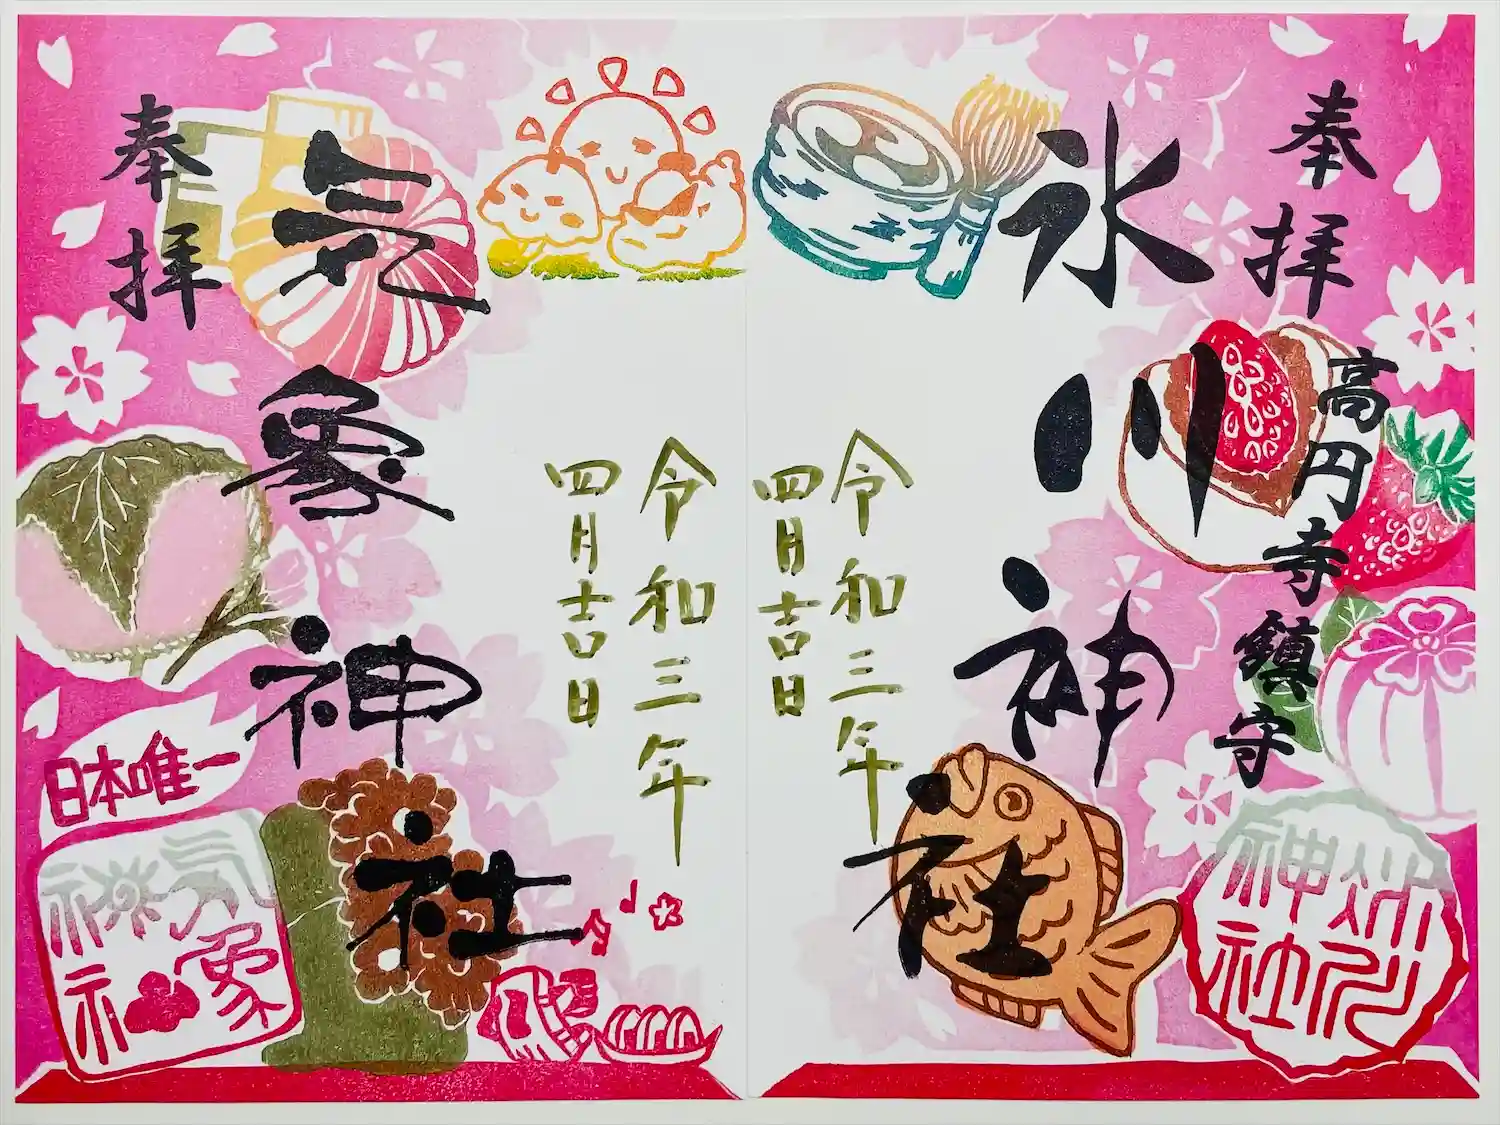 奉拝
高円寺鎮守
氷川神社
令和三年
四月吉日
氷川神社
奉拝
気象神社
令和三年
四月吉日
日本唯一
気象神社